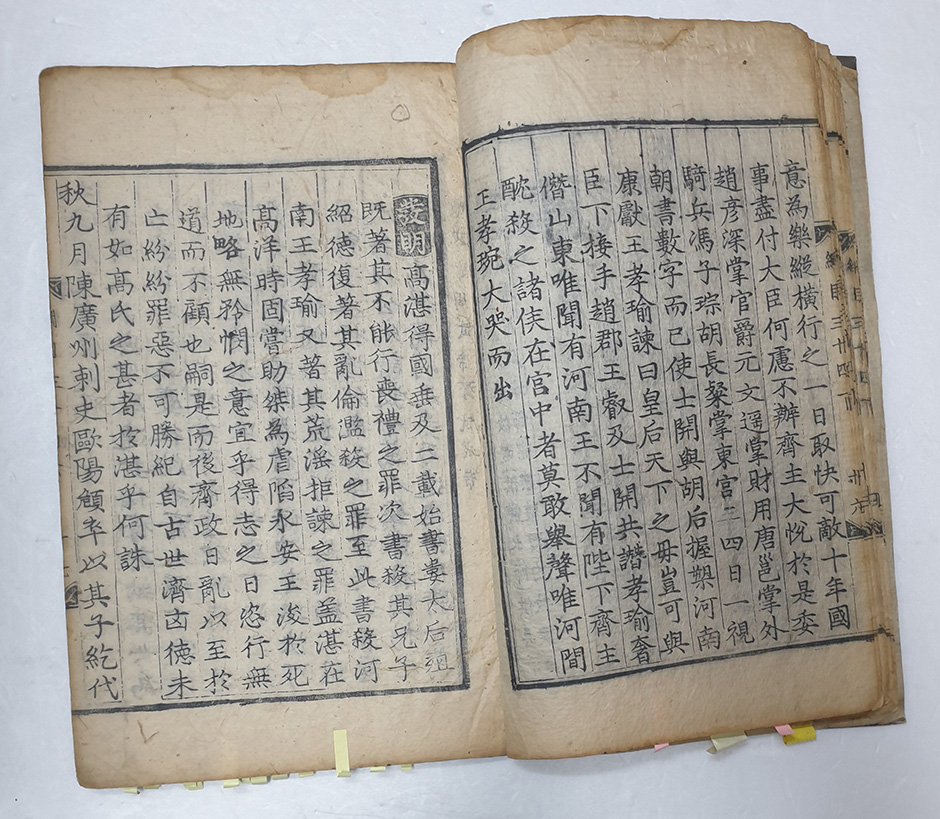 意為樂縱橫行之一日取快可敵十年國
事盡付大臣何慮不辦齊主大悅於是委
趙彥深掌官爵元文遥掌財用唐邕掌外
騎兵馮子琮胡長粲掌東宮三四日一視
朝書數字而已使士開與胡后握槊河南
康獻王孝瑜諫曰皇后天下之毋豈可與
臣下接手趙郡王叡及士開共譖孝瑜奢
僭山東唯聞有河南王不聞有陛下齊主
酖殺之諸侯在宫中者莫敢舉聲唯河間
王孝琬大哭而出
發明高湛得國垂及二載始書婁太后殂
既著其不能行喪禮之罪次書殺其兄子
紹德復著其亂倫濫殺之罪至此書殺河
南王孝瑜又著其荒淫拒諫之罪盖湛在
高洋時固嘗助桀為虐陷永安王浚於死
地略無矜憫之意宜乎得志之日恣行無
道而不顧也嗣是而後齊政日亂以至於
亡紛紛罪惡不可勝紀自古世濟凶徳未
有如高氏之甚者於湛乎何誅
秋九月陳廣州刺史歐陽頠卒以其子紇代